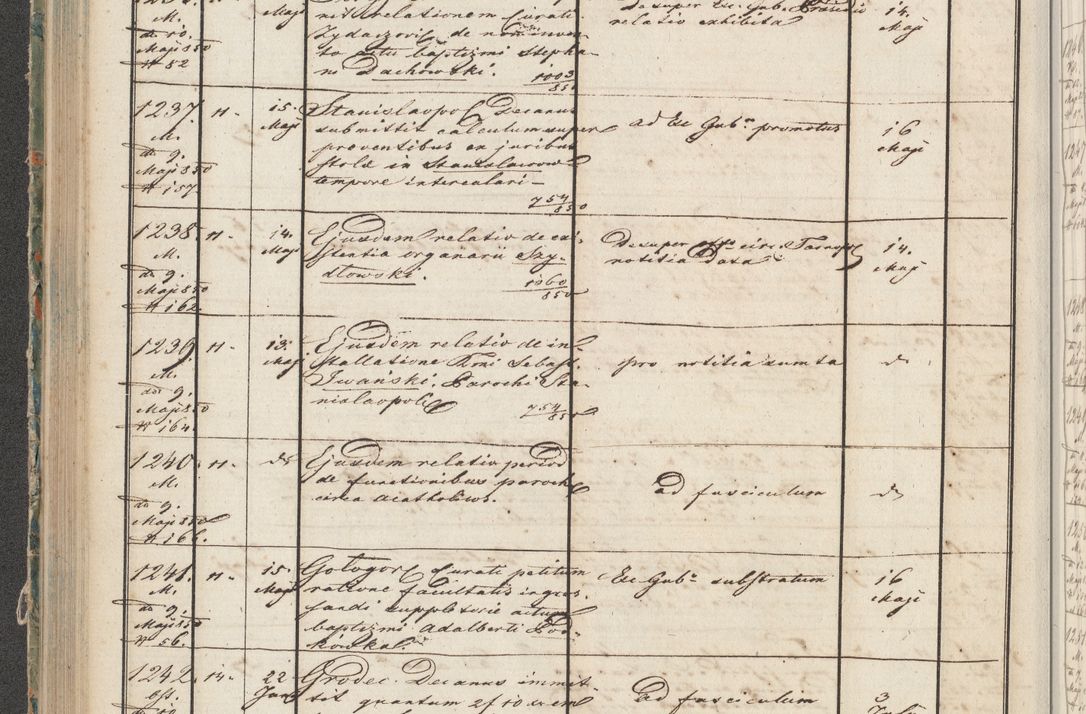 M.
Maji 850
N 82
ritu relationem Curati
Zydaczovic. de nominuen-
to actu baptizmi Stepha-
no Dachowski.
1003
850
relatio exhibita
14.
Maji
1237
M.
dto 9.
Maji 850
N 157
11.
15.
Maji
Stanislaopol Decanus
submittit calculum super
proventibus ex juribus
stolæ in Stanislawow
tempore intercalari
754
850
ad Exc Gub. promotus
16
Maji
1238.
M.
dto 9.
Maji 850
N 162.
11.
14.
Maji
Ejusdem relatio de exi-
stentia organarii Szy-
dłowski.
1060
850
Desuper Tarnop
notitia data
14.
Maji
1239
M.
dto 9.
Maji 850
N 164
11.
13.
Maji
Ejusdem relatio de in-
stallatione Rmi Sebast.
Iwański Parochi Sta-
nislaopol
754
850
pro notitia sumta
do
1240.
M.
dto 9.
Maji 850
N 166.
11.
do
Ejusdem relatio period
de functionibus paroch
circa acatholicos.
ad fasciculum
do
1241.
M.
dto 9.
Maji 850
N 56.
11.
15.
Maji
Gołogor Curati petitum
ratione facultatis ingros-
sandi suppletorie actum
baptizmi Adalberti
Exc Gub. substratum
16
Maji
1242.
14.
22
Grodec. Decanus immit-
tit quantum 2f 10 xr em
ad fasciculum
3